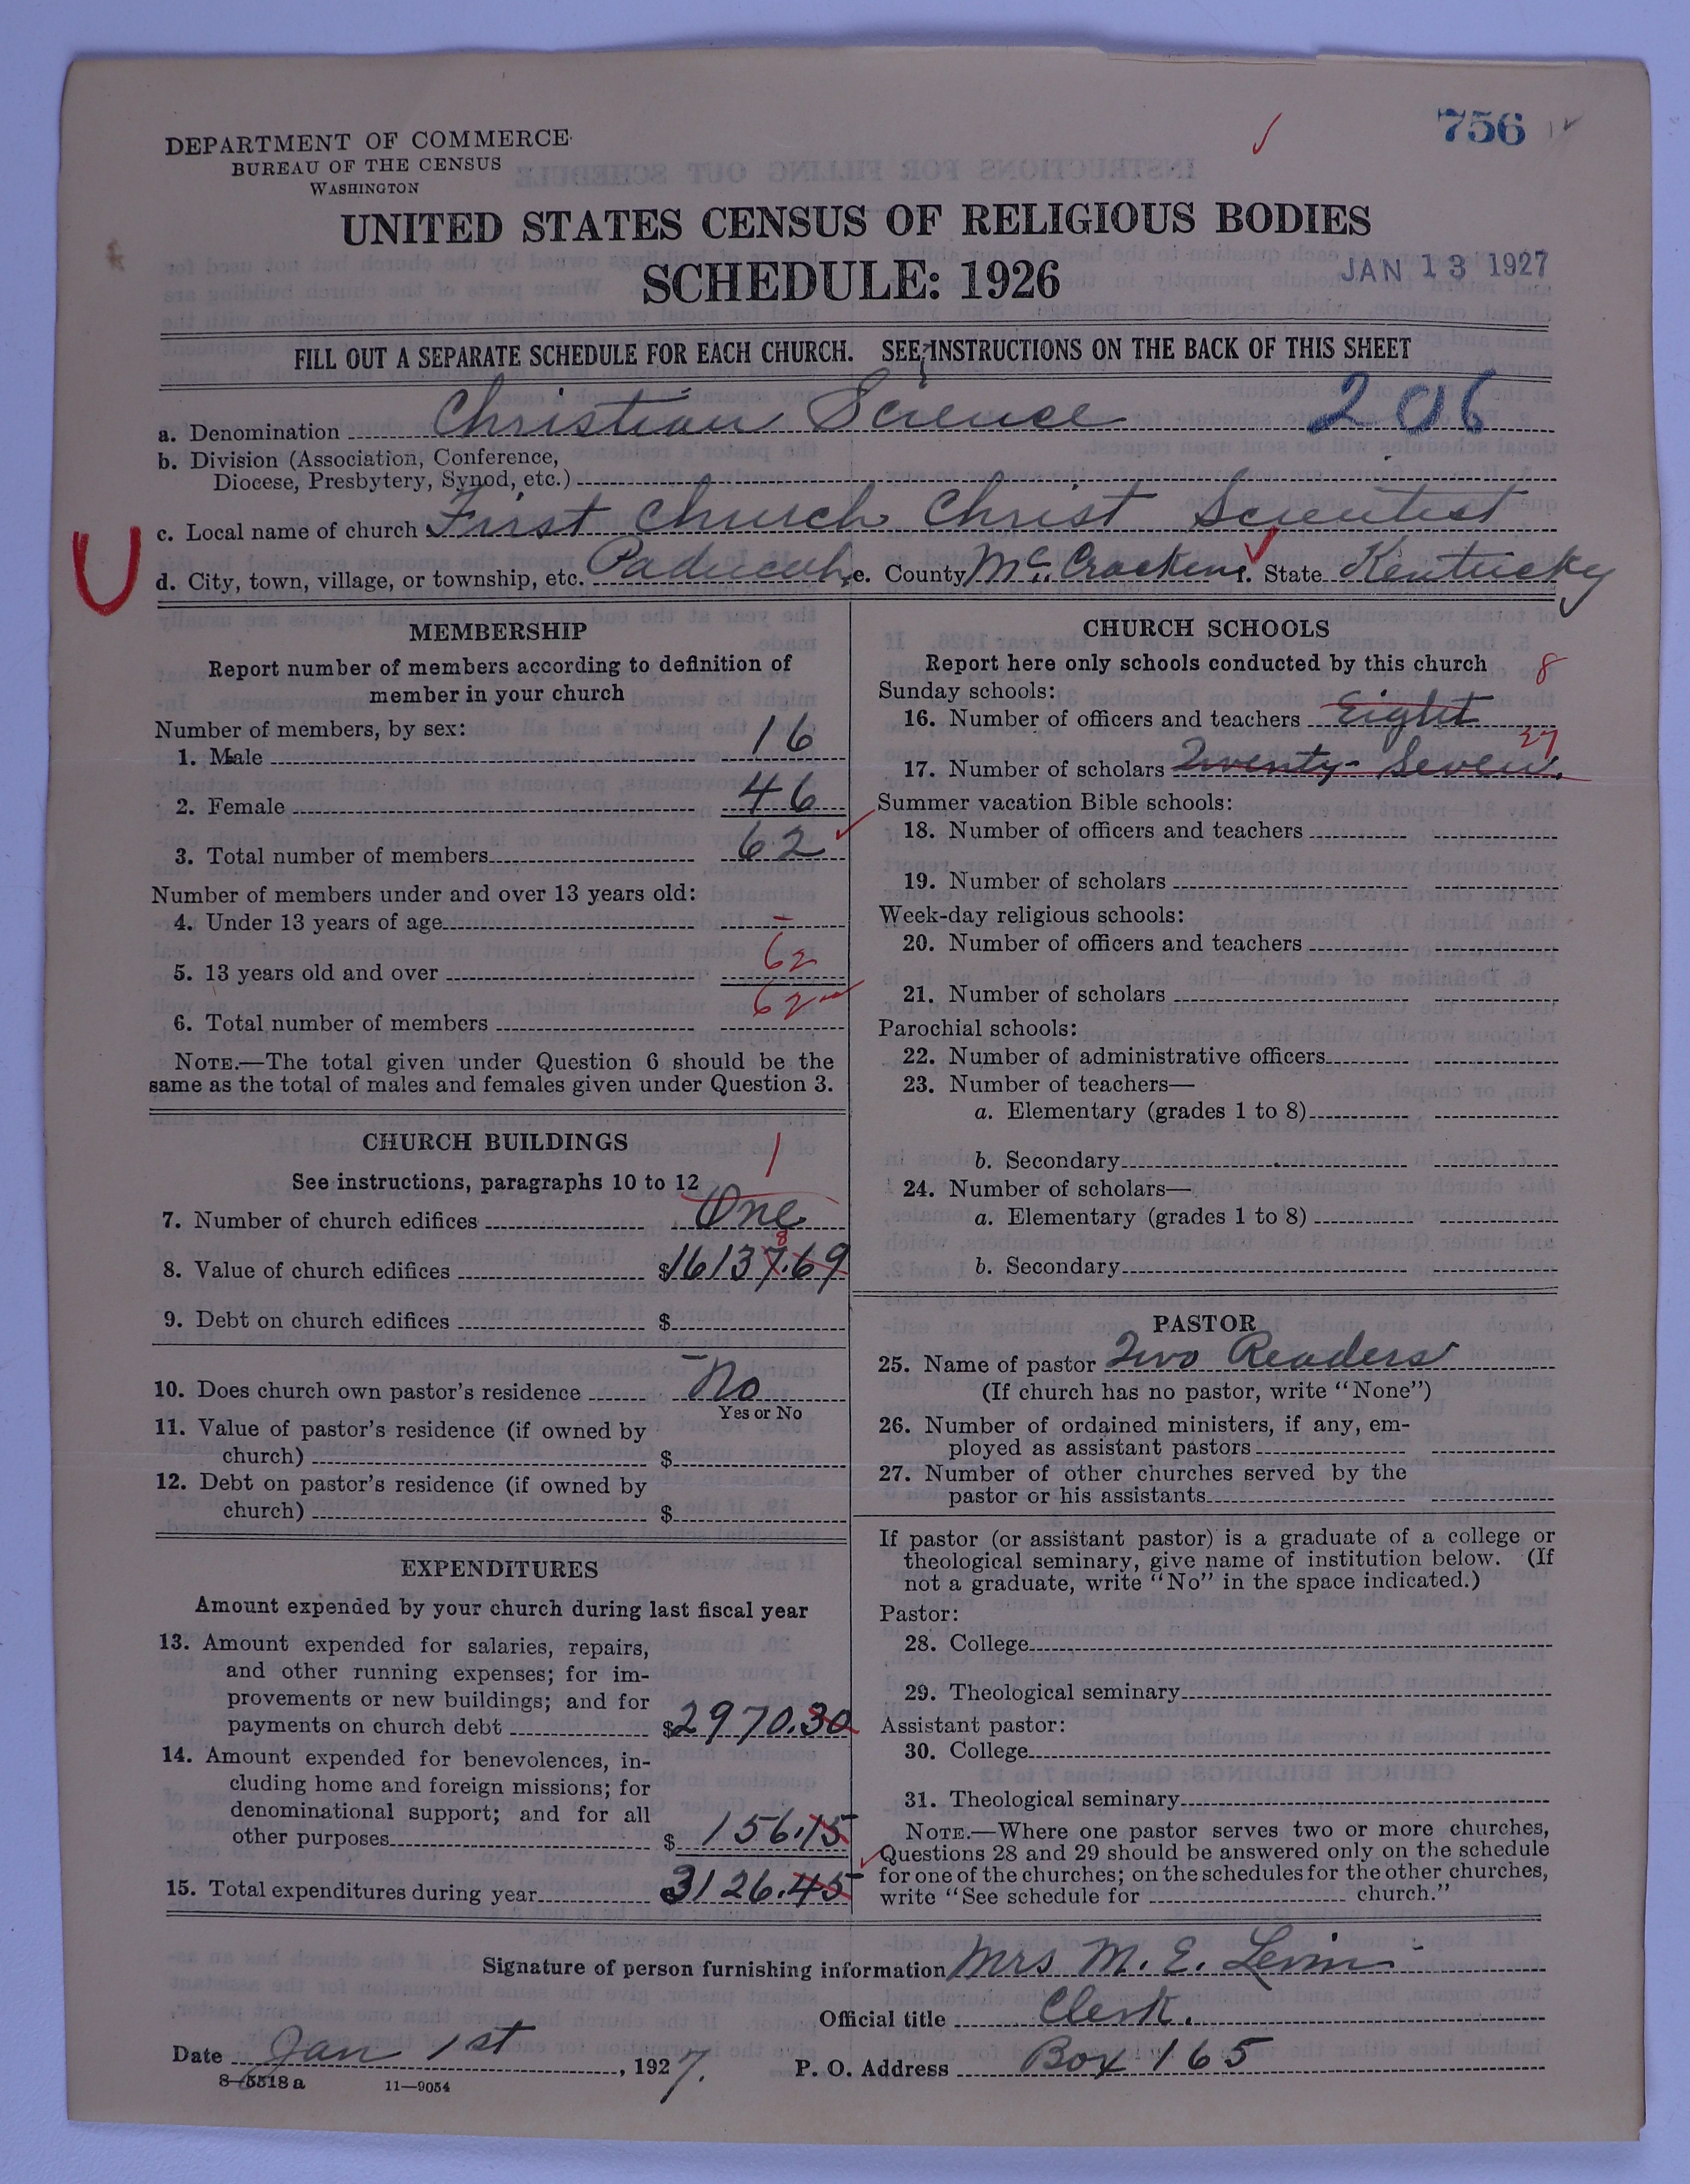 756
DEPARTMENT OF COMMERCE
BUREAU OF THE CENSUS
WASHINGTON
UNITED STATES CENSUS OF RELIGIOUS BODIES
SCHEDULE: 1926
JAN 13 1927
FILL OUT A SEPARATE SCHEDULE FOR EACH CHURCH. SEE INSTRUCTIONS ON THE BACK OF THIS SHEET
a. Denomination Christian Science 206
b. Division (Association, Conference,
Diocese, Presbytery, Synod, etc.)
c. Local name of church First Church Christ Scientist
U
d. City, town, village, or township, etc. Paducah, e. County McCracken f. State Kentucky
MEMBERSHIP
Report number of members according to definition of
member in your church
Number of members, by sex:
1. Male 16
2. Female 46
3. Total number of members 62
Number of members under and over 13 years old:
4. Under 13 years of age –
5. 13 years old and over 62
6. Total number of members 62
NOTE.—The total given under Question 6 should be the
same as the total of males and females given under Question 3.
CHURCH BUILDINGS
See instructions, paragraphs 10 to 12
1
7. Number of church edifices One
8
8. Value of church edifices $16137.69
9. Debt on church edifices $
–
10. Does church own pastor's residence No
Yes or No
11. Value of pastor's residence (if owned by
church) $
12. Debt on pastor's residence (if owned by
church) $
EXPENDITURES
Amount expended by your church during last fiscal year
13. Amount expended for salaries, repairs,
and other running expenses; for im-
provements or new buildings; and for
payments on church debt $2970.30
14. Amount expended for benevolences, in-
cluding home and foreign missions; for
denominational support; and for all
other purposes $156.15
15. Total expenditures during year $3126.45
CHURCH SCHOOLS
Report here only schools conducted by this church
8
Sunday schools:
16. Number of officers and teachers Eight
27
17. Number of scholars Twenty-Seven.
Summer vacation Bible schools:
18. Number of officers and teachers
19. Number of scholars
Week-day religious schools:
20. Number of officers and teachers
21. Number of scholars
Parochial schools:
22. Number of administrative officers
23. Number of teachers—
a. Elementary (grades 1 to 8)
b. Secondary
24. Number of scholars—
a. Elementary (grades 1 to 8)
b. Secondary
PASTOR
25. Name of pastor Two Readers
(If church has no pastor, write "None")
26. Number of ordained ministers, if any, em-
ployed as assistant pastors
27. Number of other churches served by the
pastor or his assistants
If pastor (or assistant pastor) is a graduate of a college or
theological seminary, give name of institution below. (If
not a graduate, write "No" in the space indicated.)
Pastor:
28. College
29. Theological seminary
Assistant pastor:
30. College
31. Theological seminary
NOTE.—Where one pastor serves two or more churches,
Questions 28 and 29 should be answered only on the schedule
for one of the churches; on the schedules for the other churches,
write "See schedule for church."
Signature of person furnishing information Mrs M. E. Levin
Official title Clerk.
Date Jan 1st, 1927. P. O. Address Box 165
8-5518a 11—9054